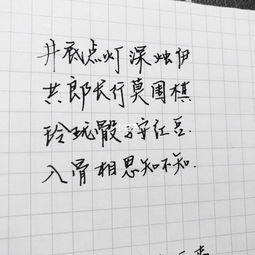 井底点灯深烛伊
共郎长行莫围棋
玲珑骰子安红豆
入骨相思知不知.